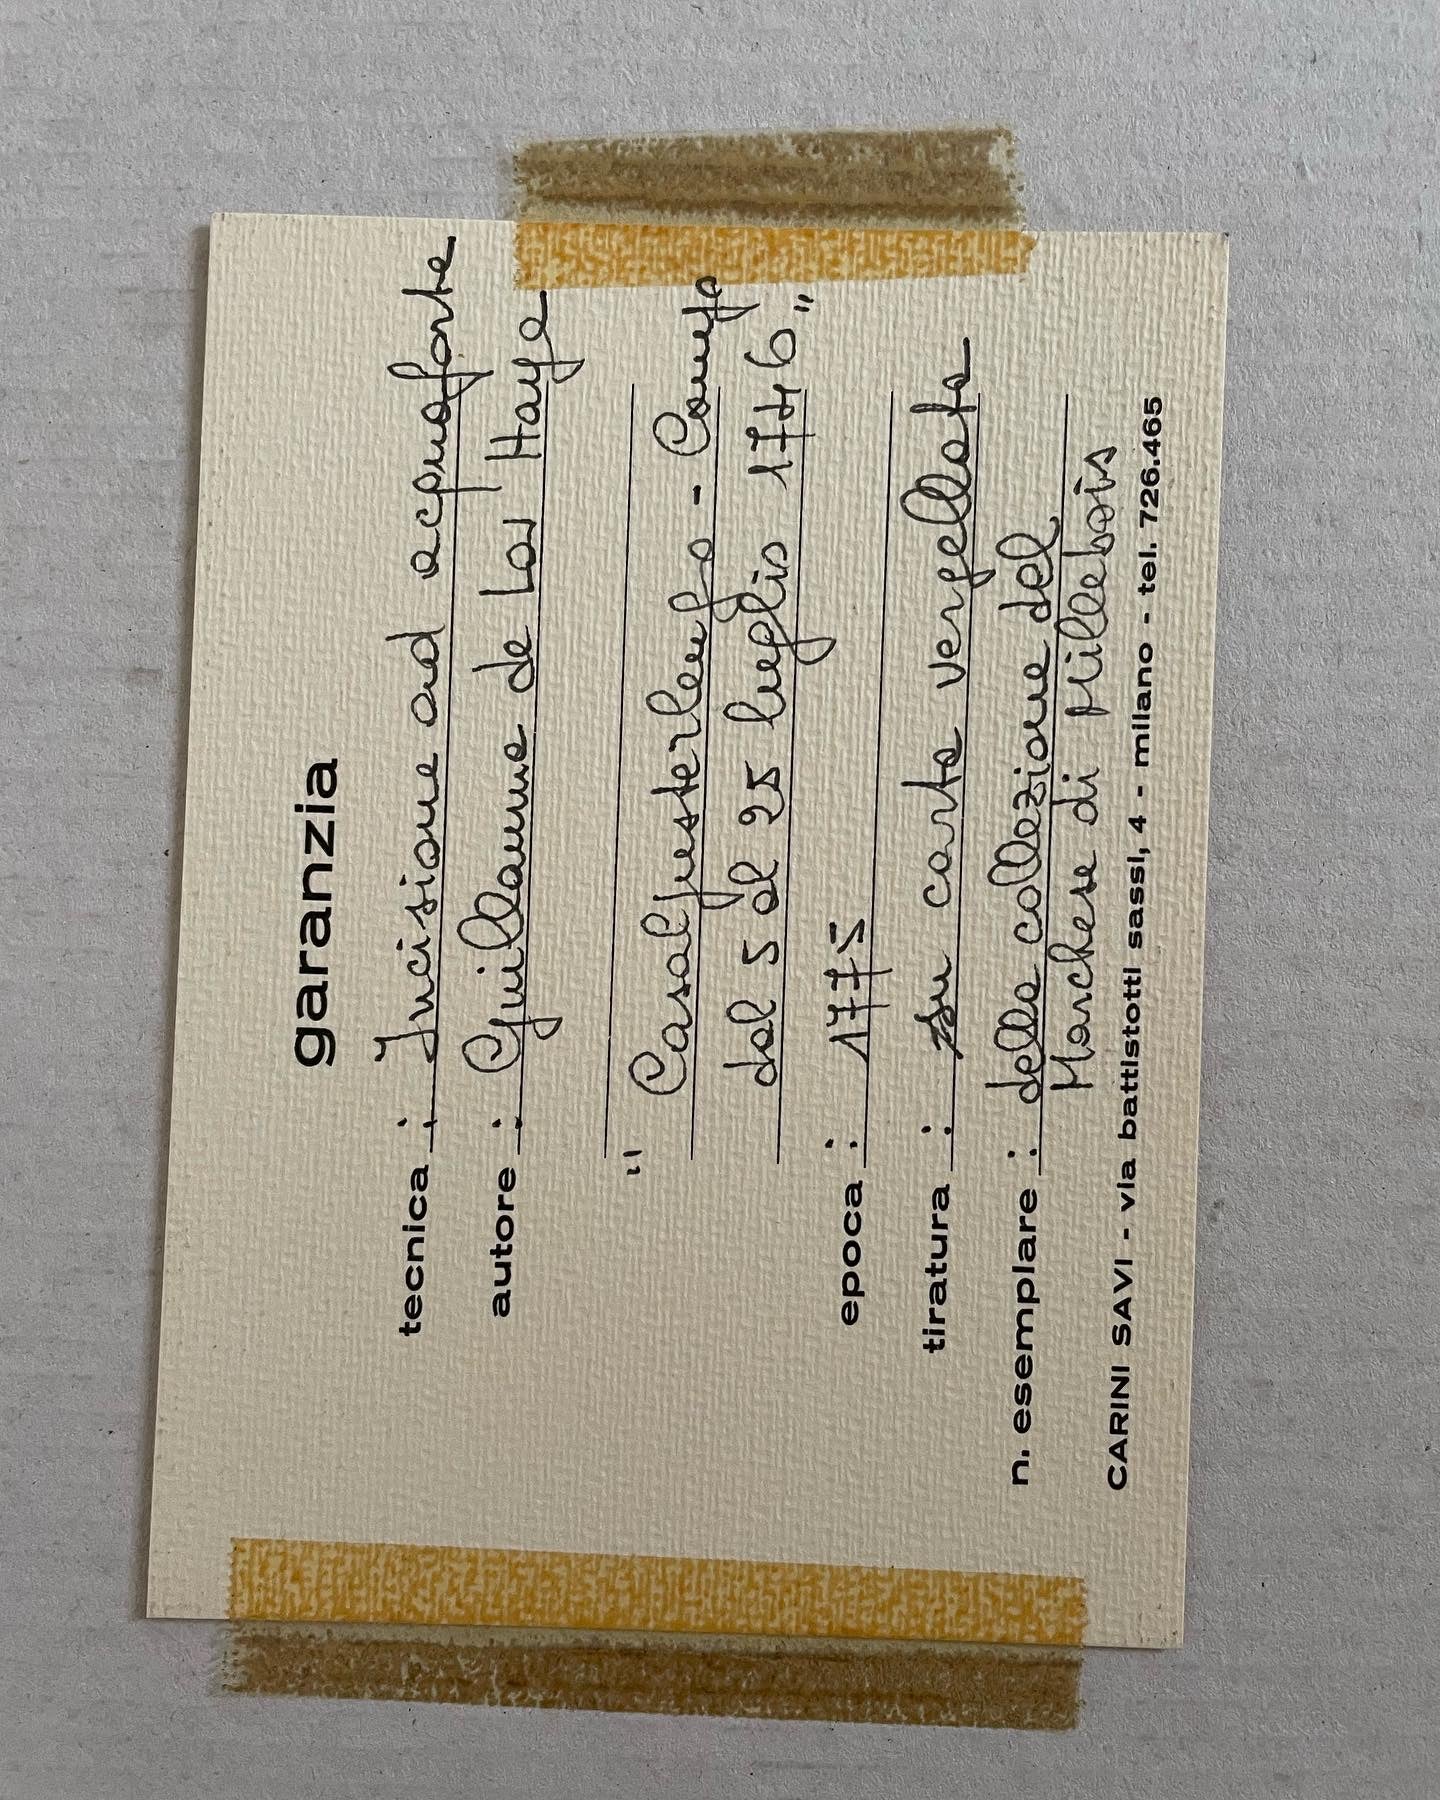 garanzia
tecnica : Incisione ad acquaforte
autore : Guillaume de Las Haye
" Casalpusterlengo - Campo
dal 5 al 25 luglio 1746"
epoca : 1775
tiratura : su carta vergellata
n. esemplare : della collezione del
Marchese di Millebois
CARINI SAVI - via battistotti sassi, 4 - milano - tel. 726.465